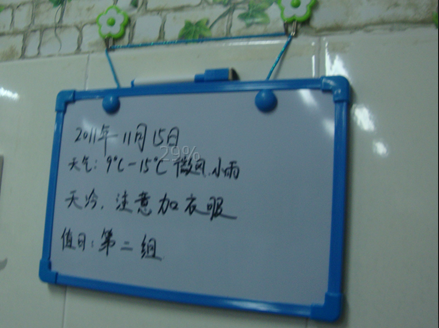 2011年11月15日
天气:9℃-15℃ 微风.小雨
天冷.注意加衣服
值日:第二组
29%